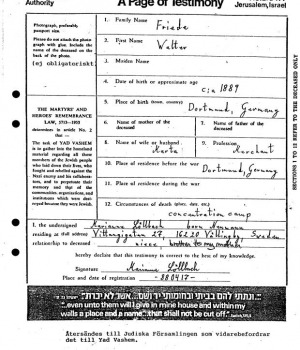 Authority
A Page of Testimony
Jerusalem, Israel
Photograph, preferably
passport size.
Please do not attach the photo-
graph with glue. Include the
name of the deceased on the
back of the photo.
(ej obligatoriskt)
1. Family Name
Friede
2. First Name
Walter
3. Maiden Name
4. Date of birth or approximate age
cia 1889
5. Place of birth (town, country)
Dortmund, Germany
THE MARTYRS' AND
HEROES' REMEMBRANCE
LAW, 5713—1953
determines in article No. 2
that —
The task of YAD VASHEM
is to gather into the homeland
material regarding all those
members of the Jewish people
who laid down their lives, who
fought and rebelled against the
Nazi enemy and his collabora-
tors, and to perpetuate their
memory and that of the
communities, organizations, and
institutions which were des-
troyed because they were Jewish.
6. Name of mother of the
deceased
7. Name of father of the
deceased
8. Name of wife or husband
Herta
9. Profession
Merchant
10. Place of residence before the war
Dortmund, Germany
11. Place of residence during the war
12. Circumstances of death (place, date, etc.)
concentration camp
SECTIONS 1 TO 12 REFER TO THE DECEASED ONLY
I, the undersigned Marianne Löllbach born
residing at (full address) Vittangigatan 27, 16220 Vällingby, Sweden
relationship to deceased niece, brother to my mother
hereby declare that this testimony is correct to the best of my knowledge.
Signature Marianne Löllbach
Place and date of registration - 880417 -
"...ונתתי להם בביתי ובחומותי יד ושם...אשר לא יכרת"
"...even unto them will I give in mine house and within my
walls a place and a name...that shall not be cut off."
Återsändes till Judiska Församlingen som vidarebefordrar
det till Yad Vashem.